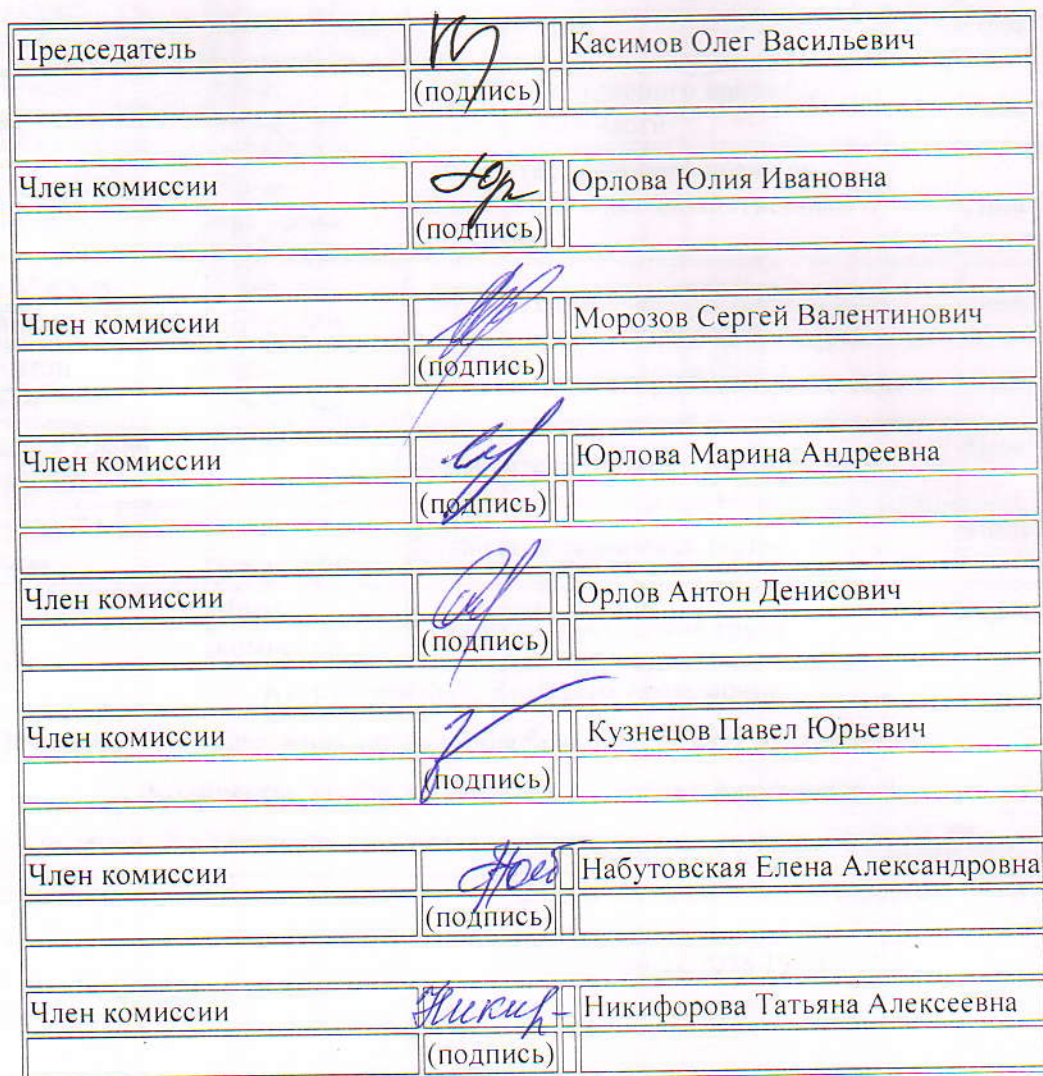 Председатель Касимов Олег Васильевич
(подпись)
Член комиссии Юр Орлова Юлия Ивановна
(подпись)
Член комиссии Морозов Сергей Валентинович
(подпись)
Член комиссии Юрлова Марина Андреевна
(подпись)
Член комиссии Орлов Антон Денисович
(подпись)
Член комиссии Кузнецов Павел Юрьевич
(подпись)
Член комиссии Наб Набутовская Елена Александровна
(подпись)
Член комиссии Никиф Никифорова Татьяна Алексеевна
(подпись)